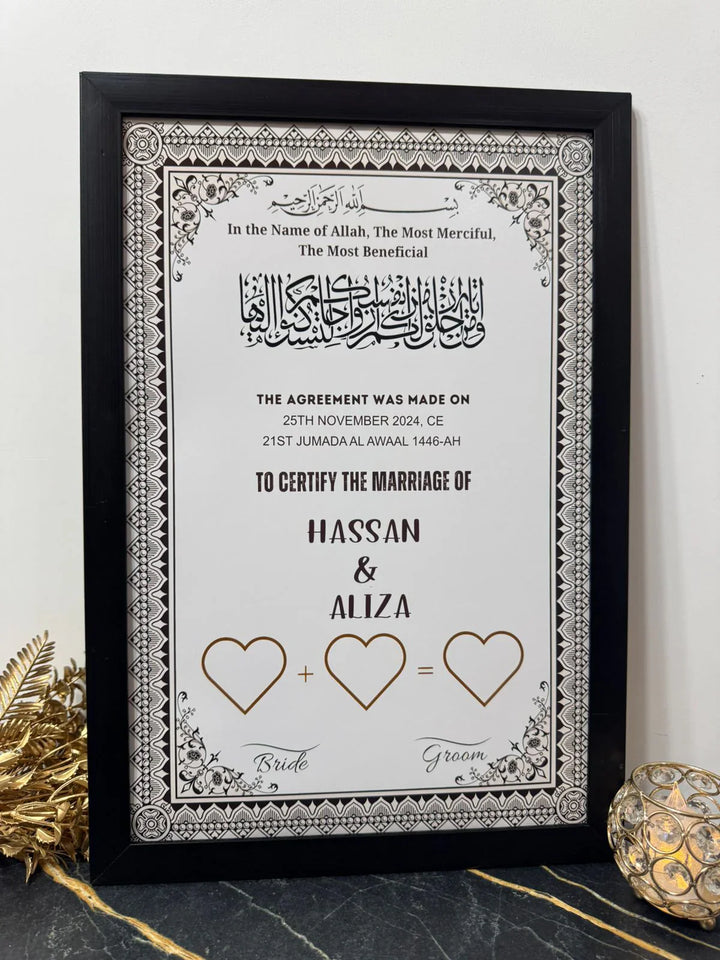 بسم الله الرحمن الرحيم
In the Name of Allah, The Most Merciful,
The Most Beneficial
ومن آياته أن خلق لكم من أنفسكم أزواجا لتسكنوا إليها
THE AGREEMENT WAS MADE ON
25TH NOVEMBER 2024, CE
21ST JUMADA AL AWAAL 1446-AH
TO CERTIFY THE MARRIAGE OF
HASSAN
&
ALIZA
+ =
Bride Groom